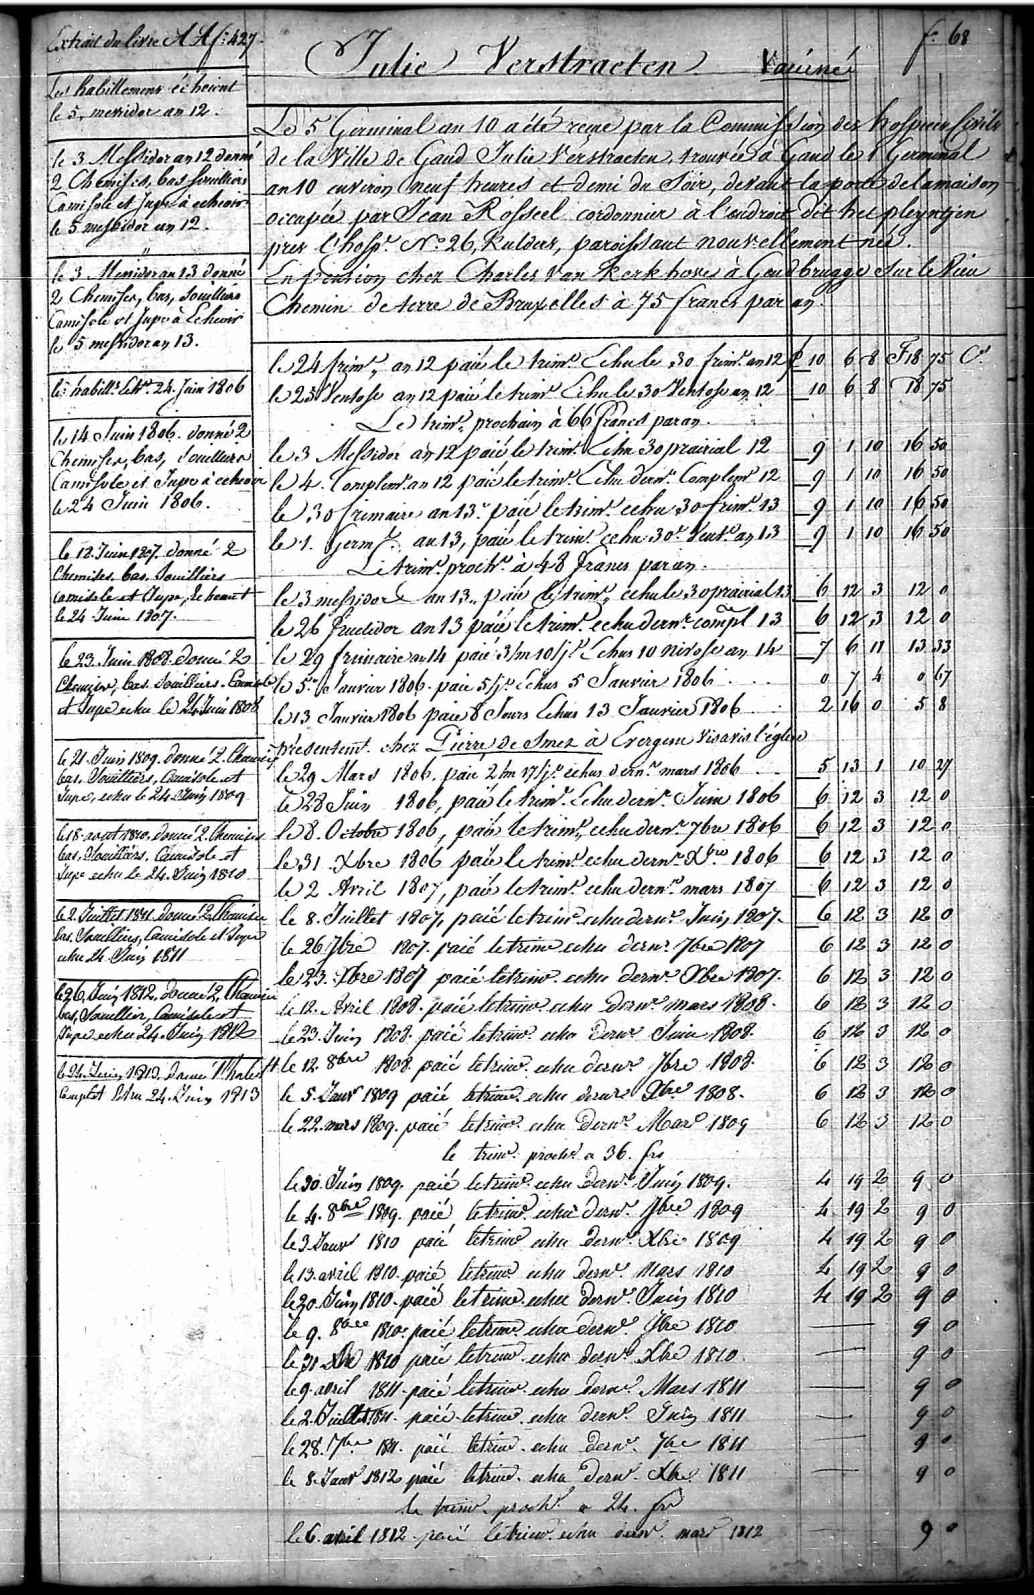 Extrait du livre A A f: 427.
Les habillemens échoient
le 5, messidor an 12.
le 3 Messidor an 12 donné
2 Chemises, bas souilliers
Camisole et Jupe à echeoir
le 5 messidor an 12.
"
le 3 Messidor an 13 donné
2 Chemises, bas, Souilliers
Camisole et Jupe à Echeoir
le 5 messidor an 13.
24. Juin 1806
le 14 Juin 1806. donné 2
Chemises, bas, Souilliers
Camisole et Jupe à echeoir
le 24 Juin 1806.
le 12. Juin 1807. donné 2
Chemises, bas, Souilliers
Camisole et Jupe, Echeant
le 24 Juin 1807.
le 23. Juin 1808. donné 2
Chemises, bas. Souilliers. Camisole
et Jupe echu le 24 Juin 1808
le 21. Juin 1809. donné 2. Chemises
bas. Souilliers, Camisole et
Jupe, echu le 24. Juin 1809
le 18. aout 1810. donné 2. Chemises
bas, Souilliers, Camisole et
Jupe echu le 24. Juin 1810
le 2. Juillet 1811. donné 2. Chemises
bas. Souilliers, Camisole et Jupe
echu 24. Juin 1811
le 26. Juin 1812. donné 2. Chemises
bas, Souilliers, Camisole et
Jupe echu 24. Juin 1812
le 24. Juin 1813. donné
Complet Echu 24. Juin 1813
Julie Verstraeten. Vaciné f.° 68
Le 5 Germinal an 10 a été reçue par la Commission des hospices Civils
de la Ville de Gand Julie Verstraeten, trouvée à Gand le 1 Germinal
an 10 environ neuf heures et demi du Soir, devant la porte de la maison
occupée par Jean Rosseel cordonnier à l'endroit dit het pleyntjen
pres l'hosp.e N.o 26, Kulders, paroissant nouvellement née.
En pension chez Charles Van Kerkhove à Gendbrugge Sur le Vieu
Chemin de terre de Bruxelles à 75 francs par an.
le 24 frim.e an 12 paié le trim.e Echu le 30 frim.e an 12 £ 10 6 8 F 18 75 C.s
le 25 Ventose an 12 paié le trim.e Echu le 30 Ventose an 12 10 6 8 18 75
Le trim.e prochain à 66 francs par an.
le 3 Messidor an 12 paié le trim.e Echu 30 prairial 12 9 1 10 16 50
le 4. Complem.e an 12 paié le trim.e Echu dern.r Complem.e 12 9 1 10 16 50
le 30 frimaire an 13.e paié le trim.e echu 30 frim.e 13 9 1 10 16 50
le 1. Germ.l an 13, paié le trim.e echu 30.e Vent.e an 13 9 1 10 16 50
Le trim.e proch.n à 48 francs par an.
le 3 messidor an 13.. paié le trim.e echu le 30 prairial 13 6 12 3 12 0
le 26 fructidor an 13 paié le trim.e echu dern.r compl 13 6 12 3 12 0
le 29 frimaire an 14 paié 3/m 10/j.s Echus 10 nivose an 14 7 6 11 13 33
le 5.e Janvier 1806. paié 5/j.s echus 5 Janvier 1806 0 7 4 0 67
le 13 Janvier 1806 paié 8 Jours Echus 13 Janvier 1806 2 16 0 5 8
présentem.t chez Pierre de Smez à Evergem visavis l'église
le 29 Mars 1806, paié 2/m 17/j.s echus dern.r mars 1806 5 13 1 10 27
le 28 Juin 1806, paié le trim.e Echu dern.r Juin 1806 6 12 3 12 0
le 8. Octobre 1806, paié le trim.e echu dern.r 7bre 1806 6 12 3 12 0
le 31 Xbre 1806 paié le trim.e echu dern.r Xbre 1806 6 12 3 12 0
le 2 Avril 1807, paié le trim.e echu dern.r mars 1807 6 12 3 12 0
le 8. Juillet 1807, paié le trim.e echu dern.r Juin 1807. 6 12 3 12 0
le 26 7bre 1807. paié le trim.e echu dern.r 7bre 1807 6 12 3 12 0
le 23. Xbre 1807 paié le trim.e echu dern.r Xbre 1807. 6 12 3 12 0
le 12. Avril 1808. paié le trim.e echu dern.r mars 1808. 6 12 3 12 0
le 23. Juin 1808. paié le trim.e echu dern.r Juin 1808. 6 12 3 12 0
le 12. 8bre 1808. paié le trim.e echu dern.r 7bre 1808. 6 12 3 12 0
le 5. Janv.r 1809 paié le trim.e echu dern.r Xbre 1808. 6 12 3 12 0
le 22. mars 1809. paié le trim.e echu dern.r Mars 1809 6 12 3 12 0
le trim.e proch.n a 36. frs
le 30. Juin 1809. paié le trim.e echu dern.r Juin 1809. 4 19 2 9 0
le 4. 8bre 1809. paié le trim.e echu dern.r 7bre 1809 4 19 2 9 0
le 3. Janv.r 1810 paié le trim.e echu dern.r Xbre 1809 4 19 2 9 0
le 13. avril 1810. paié le trim.e echu dern.r Mars 1810 4 19 2 9 0
le 20. Juin 1810. paié le trim.e echu dern.r Juin 1810 4 19 2 9 0
le 9. 8bre 1810. paié le trim.e echu dern.r 7bre 1810 9 0
le 31 Xbre 1810 paié le trim.e echu dern.r Xbre 1810. 9 0
le 9. avril 1811. paié le trim.e echu dern.r Mars 1811 9 0
le 2. Juillet 1811. paié le trim.e echu dern.r Juin 1811 9 0
le 28. 7bre 1811. paié le trim.e echu dern.r 7bre 1811 9 0
le 8. Janv.r 1812 paié le trim.e echu dern.r Xbre 1811 9 0
le trim.e proch.n a 24. frs
le 6. avril 1812. paié le trim.e echu dern.r mars 1812 9 0